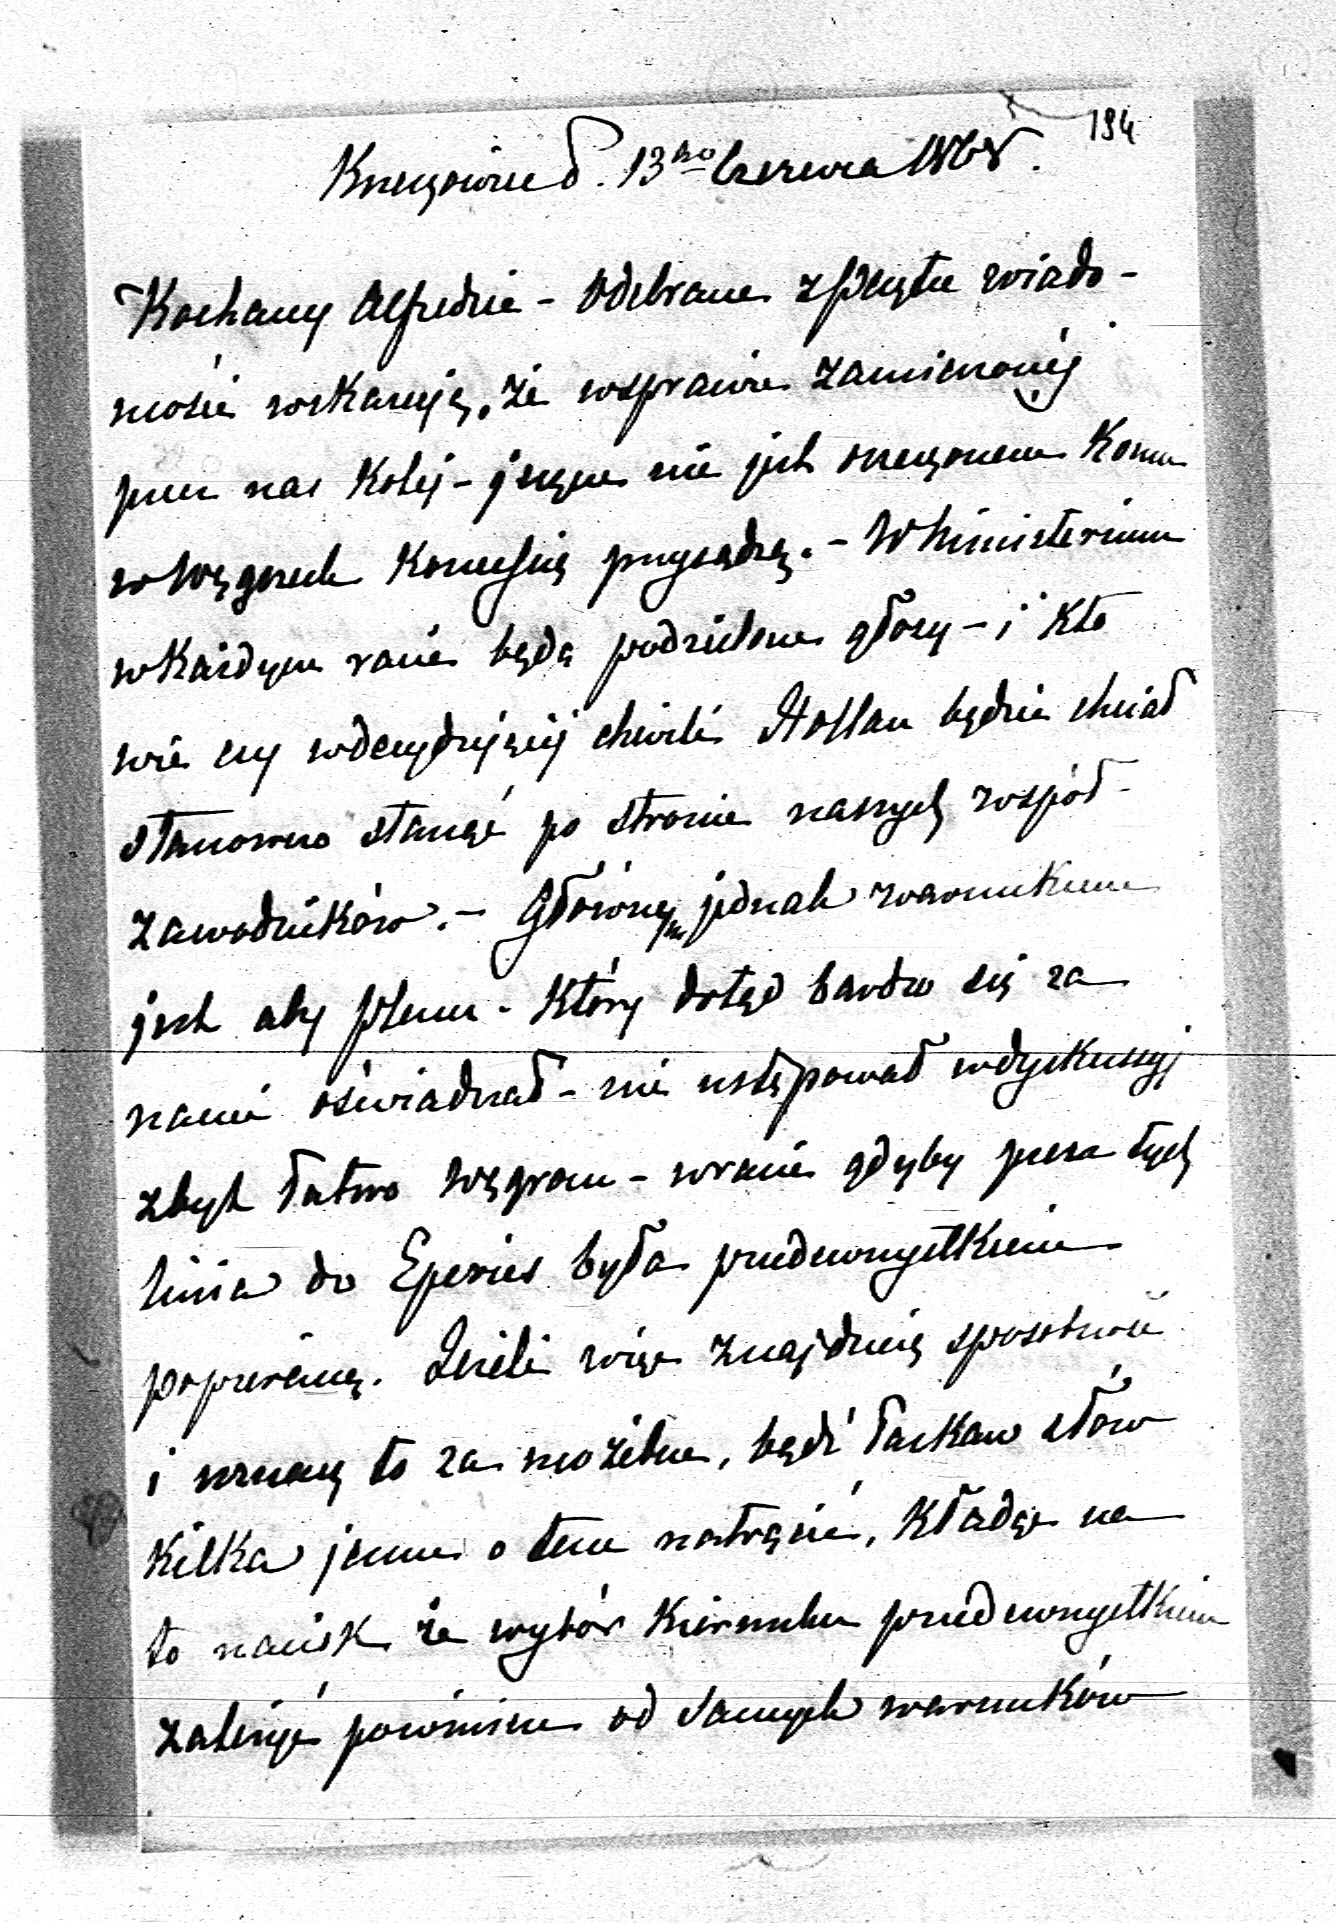 194
Krzeszowice d. 13go Czerwca 1868.
Kochany Alfredzie - Odebrane z Pesztu wiado-
mości wskazują, że wsprawie zamierzonéj
przez nas Koléj - jeszcze nie jest orzeczonem Komu
w Węgrzech Koncessię przysądzą. - W Ministerium
w Każdym razie będą podzielone głosy - i Kto
wie czy wdecydującéj chwili Hollan będzie chciał
stanowczo stanąć po stronie naszych współ-
zawodników. - Głównym jednak warunkiem
jest aby Plener - Który dotąd bardzo się za
nami oświadczał - nie ustępował w dyskussyj
zbyt łatwo Węgrom - wrazie gdyby przez tych
linia do Eperies była przedewszystkiem
popieraną. Jeżeli więc znajdziesz sposobność
i uznasz to za możebne, bądź łaskaw słów
Kilka jemu o tem natrącić, Kładąc na
to nacisk że wybór Kierunku przedewszystkiem
zależyć powinien od samych warunków